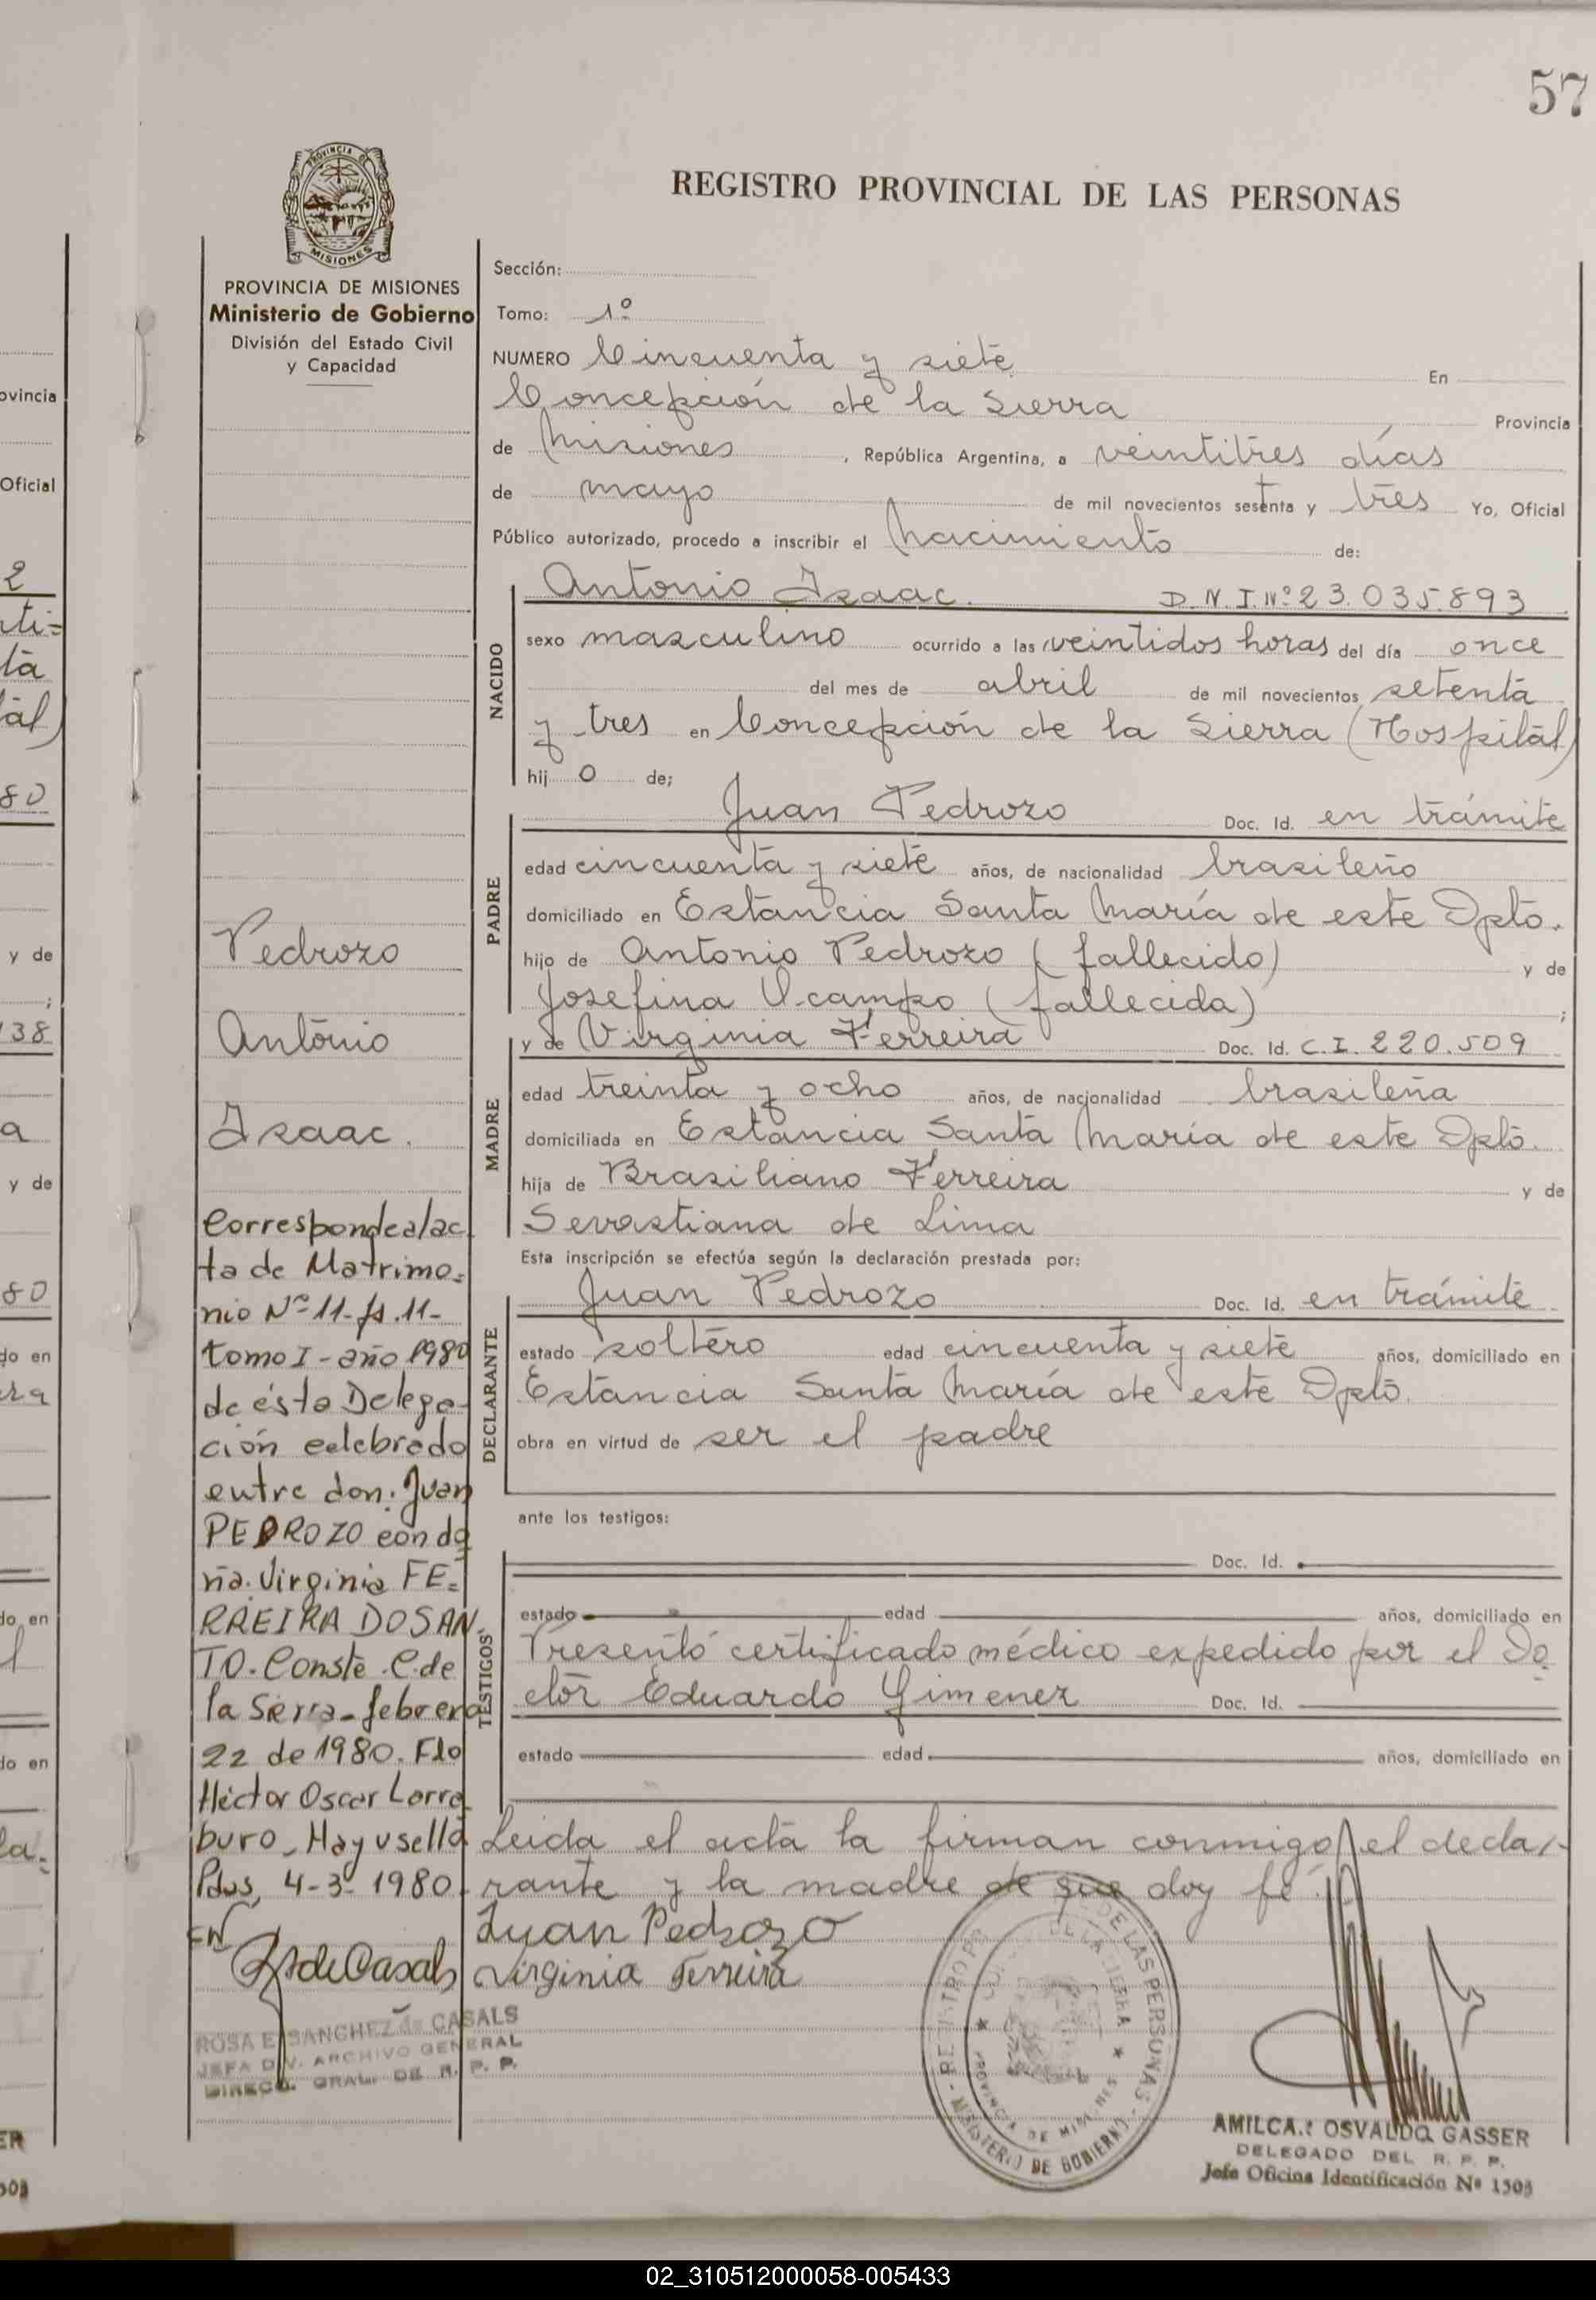 57
REGISTRO PROVINCIAL DE LAS PERSONAS
PROVINCIA DE MISIONES
PROVINCIA DE MISIONES
Ministerio de Gobierno
División del Estado Civil
y Capacidad
Pedrozo
Antonio
Isaac.
Corresponde al ac
ta de Matrimo=
nio Nº 11-fs.11-
tomo I - año 1980
de ésta Delega-
ción celebrado
entre don: Juan
PEDROZO con do
ña. Virginia FE=
RREIRA DO SAN
TO. Conste. C. de
la Sierra - febrero
22 de 1980. Fdo
Héctor Oscar Larra
buro - Hay usello
Pdas, 4-3-1980.
ROSA E. SANCHEZ de CASALS
JEFA DIV. ARCHIVO GENERAL
DIRECC. GRAL. DE R. P. P.
Sección:
Tomo: 1º
NUMERO Cincuenta y siete En
Concepción de la Sierra Provincia
de Misiones, República Argentina, a veintitres días
de mayo de mil novecientos setenta y tres Yo, Oficial
Público autorizado, procedo a inscribir el Nacimiento de:
NACIDO
Antonio Isaac. D.N.I.Nº 23.035.893
sexo masculino ocurrido a las veintidos horas del día once
del mes de abril de mil novecientos setenta
y tres en Concepción de la Sierra (Hospital)
hij o de;
PADRE
Juan Pedrozo Doc. Id. en trámite
edad cincuenta y siete años, de nacionalidad brasileño
domiciliado en Estancia Santa María de este Dpto.
hijo de Antonio Pedrozo (fallecido) y de
Josefina Ocampo (fallecida) ;
MADRE
y de Virginia Ferreira Doc. Id. C.I. 220.509
edad treinta y ocho años, de nacionalidad brasileña
domiciliada en Estancia Santa María de este Dpto.
hija de Brasiliano Ferreira y de
Sevastiana de Lima
Esta inscripción se efectúa según la declaración prestada por:
DECLARANTE
Juan Pedrozo Doc. Id. en trámite
estado soltero edad cincuenta y siete años, domiciliado en
Estancia Santa María de este Dpto.
obra en virtud de ser el padre
ante los testigos:
TESTIGOS
Doc. Id.
estado edad años, domiciliado en
Presentó certificado médico expedido por el Do
ctor Eduardo Gimenez Doc. Id.
estado edad años, domiciliado en
Leida el acta la firman conmigo el decla-
rante y la madre de que doy fé.
Juan Pedrozo
Virginia Ferreira
MINISTERIO DE GOBIERNO
PROVINCIA DE MISIONES
DE LAS PERSONAS
AMILCAR OSVALDO GASSER
DELEGADO DEL R. P. P.
Jefe Oficina Identificación Nº 1503
02_310512000058-005433